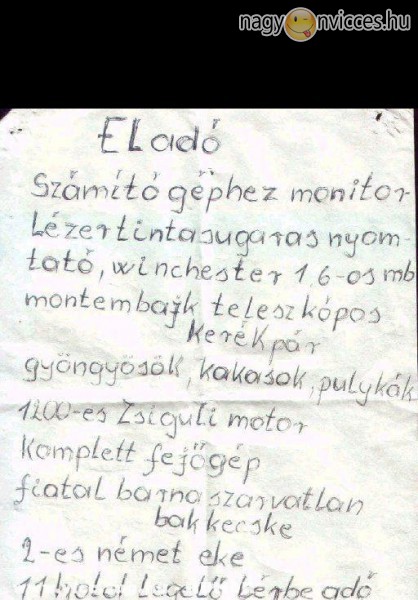 nagyonvicces.hu
ELadó
Számító géphez monitor
Lézertintasugaras nyom-
tató, winchester 1,6-os mb
montembajk teleszkópos
kerékpár
gyöngyösök, kakasok, pulykák
1200-es Zsiguli motor
Komplett fejőgép
fiatal barna szarvatlan
bak kecske
2-es német eke
11 hold Legelő bérbe adó